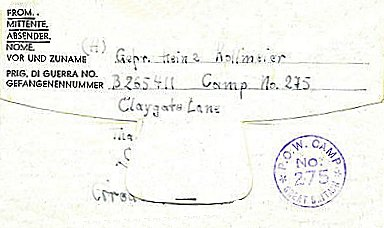 FROM.
MITTENTE.
ABSENDER.
NOME.
VOR UND ZUNAME (A) Gefr. Heinz Kollmeier
PRIG. DI GUERRA NO.
GEFANGENENNUMMER B 265411 Camp No. 275
Claygate Lane
Tha
P.O.W. CAMP
NO:
275
GREAT BRITAIN